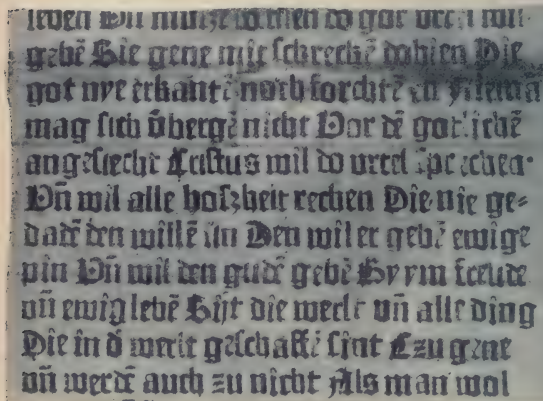 leben Vñ musze
gebē Sie gene mit schreckē dohien Die
got nye erkantē noch forchtē en Niemā
mag sich v̄bergē nicht Vor dē gotlichē
angesiecht Cristus wil do vrtel sprechen
Vñ wil alle boszheit rechen Die nie ge⸗
dadē den willē sin Den wil er gebē ewige
pin Vñ wil den gudē gebē By ym freude
vñ ewig lebē Sijt die werlt vñ alle ding
Die in d̄ werlt geschaffē sint Czu gene
vñ werdē auch zu nicht Als man wol